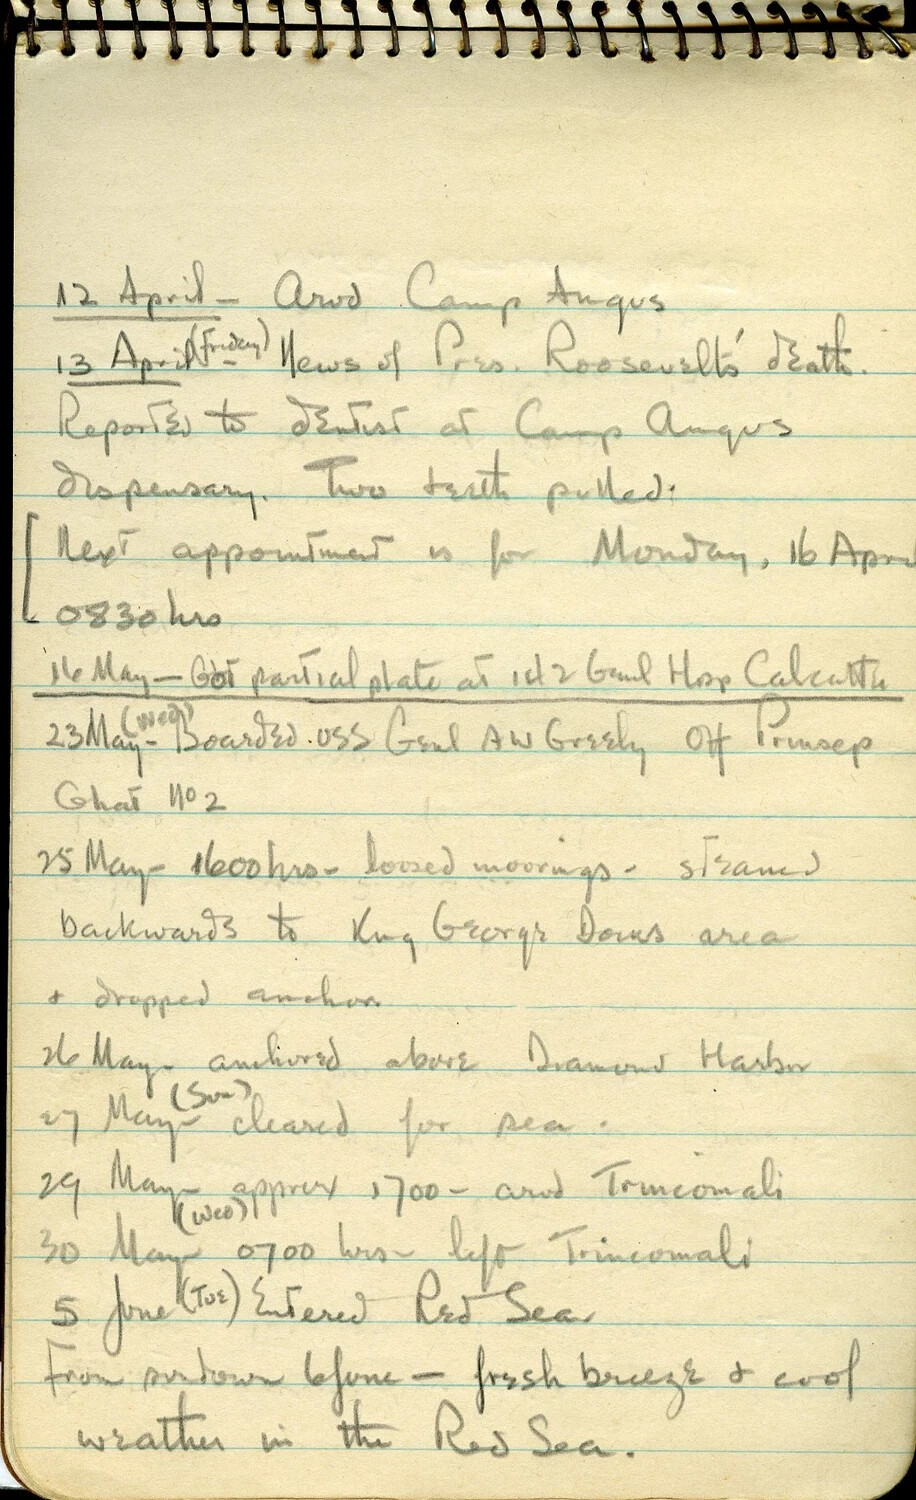 12 April - Arvd Camp Angus
13 April (Friday) - News of Pres. Roosevelts' death.
Reported to dentist at Camp Angus
dispensary. Two teeth pulled.
[Next appointment is for Monday, 16 April
0830 hrs
16 May - Got partial plate at 142 Genl Hosp Calcutta
23 May (Wed) - Boarded USS Genl AW Greely Off Prinsep
Ghat No 2
25 May - 1600 hrs - loosed moorings - steamed
backwards to King George Docks area
+ dropped anchor
26 May - anchored above Diamond Harbor
27 May (Sun) - cleared for sea.
29 May - approx 1700 - arvd Trincomali
30 May (Wed) - 0700 hrs - left Trincomali
5 June (Tue) Entered Red Sea
From sundown 6 June - fresh breeze + cool
weather in the Red Sea.